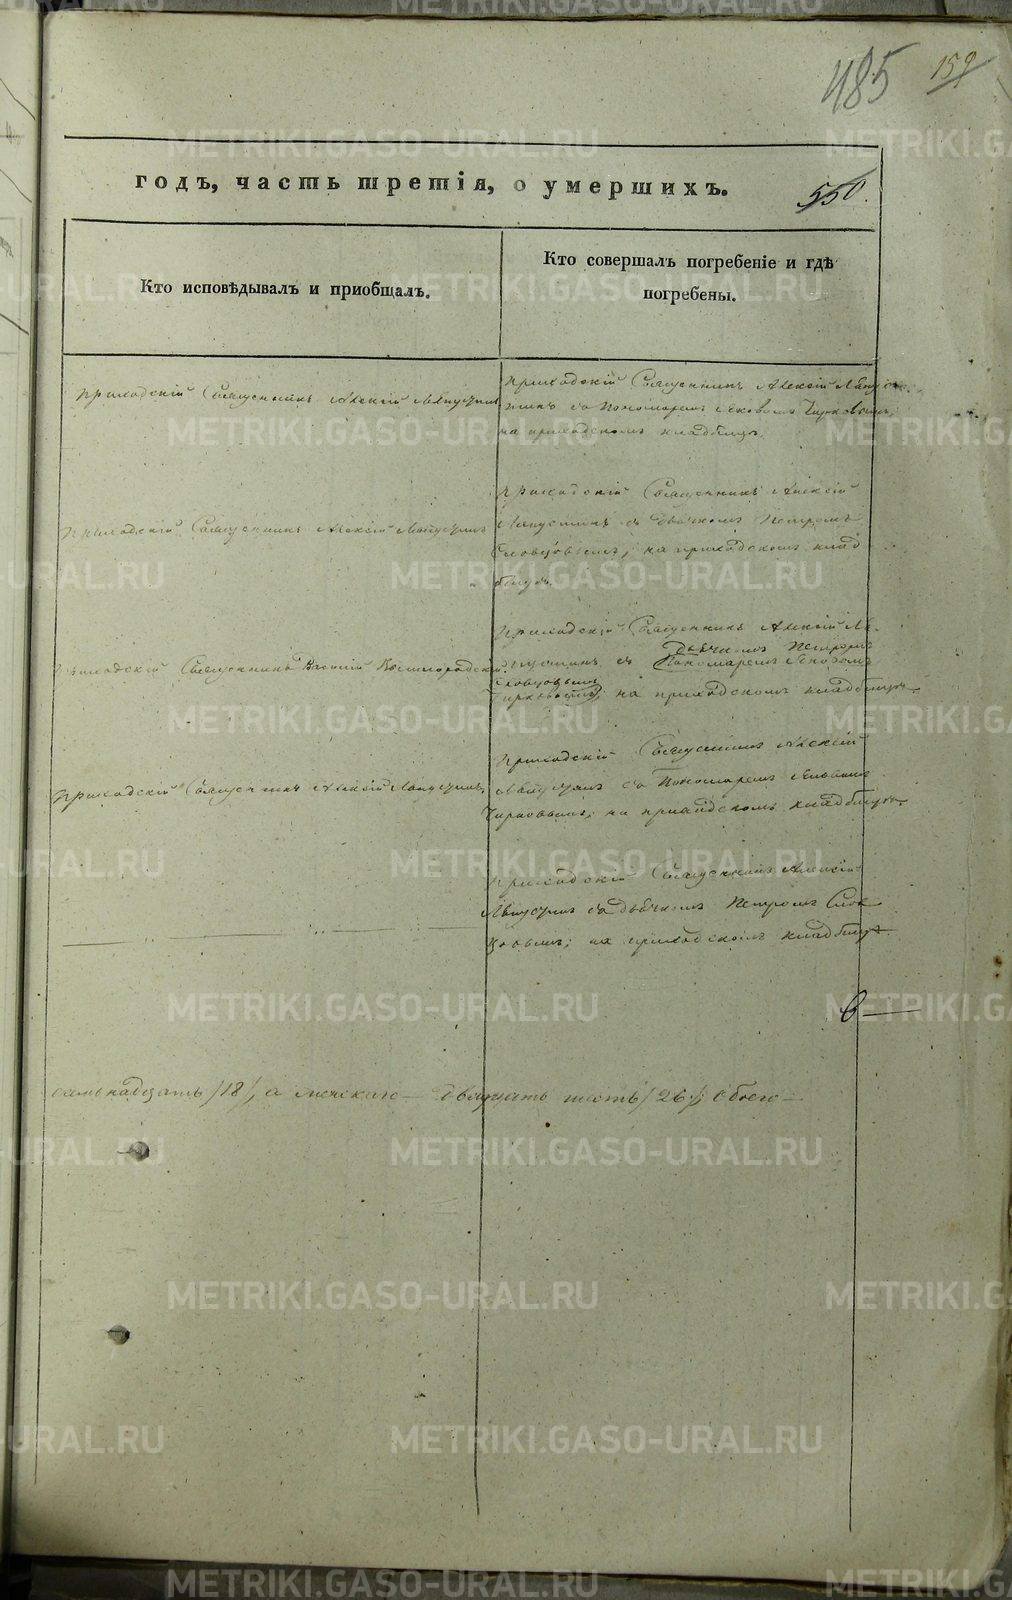 485 159
годъ, часть третія, о умершихъ.
550.
Кто исповѣдывалъ и приобщалъ.
Кто совершалъ погребеніе и гдѣ
погребены.
Приходскій Священникъ Алексій Лапустинъ
Приходскій Священникъ Алексій Лапус-
тинъ съ Пономаремъ Яковомъ Чирковымъ;
на приходскомъ кладбищѣ.
Приходскій Священникъ Алексій Лапустинъ
Приходскій Священникъ Алексій
Лапустинъ съ дьячкомъ Петромъ
Словцовымъ; на приходскомъ клад
бищѣ.
Приходскій Священникъ
Приходскій Священникъ Алексій Ла-
Дьячкомъ Петромъ
пустинъ съ Пономаремъ
Словцовымъ
Чирковымъ; на приходскомъ кладбищѣ
Приходскій Священникъ Алексій Лапустинъ
Приходскій Священникъ Алексій
Лапустинъ съ Пономаремъ Яковомъ
Чирковымъ; на приходскомъ кладбищѣ
Приходскій Священникъ Алексій
Лапустинъ съ дьячкомъ Петромъ Слов
цовымъ; на приходскомъ кладбищѣ.
семнадцать /18/, а женскаго двадцать шесть /26/; обоего
METRIKI.GASO-URAL.RU